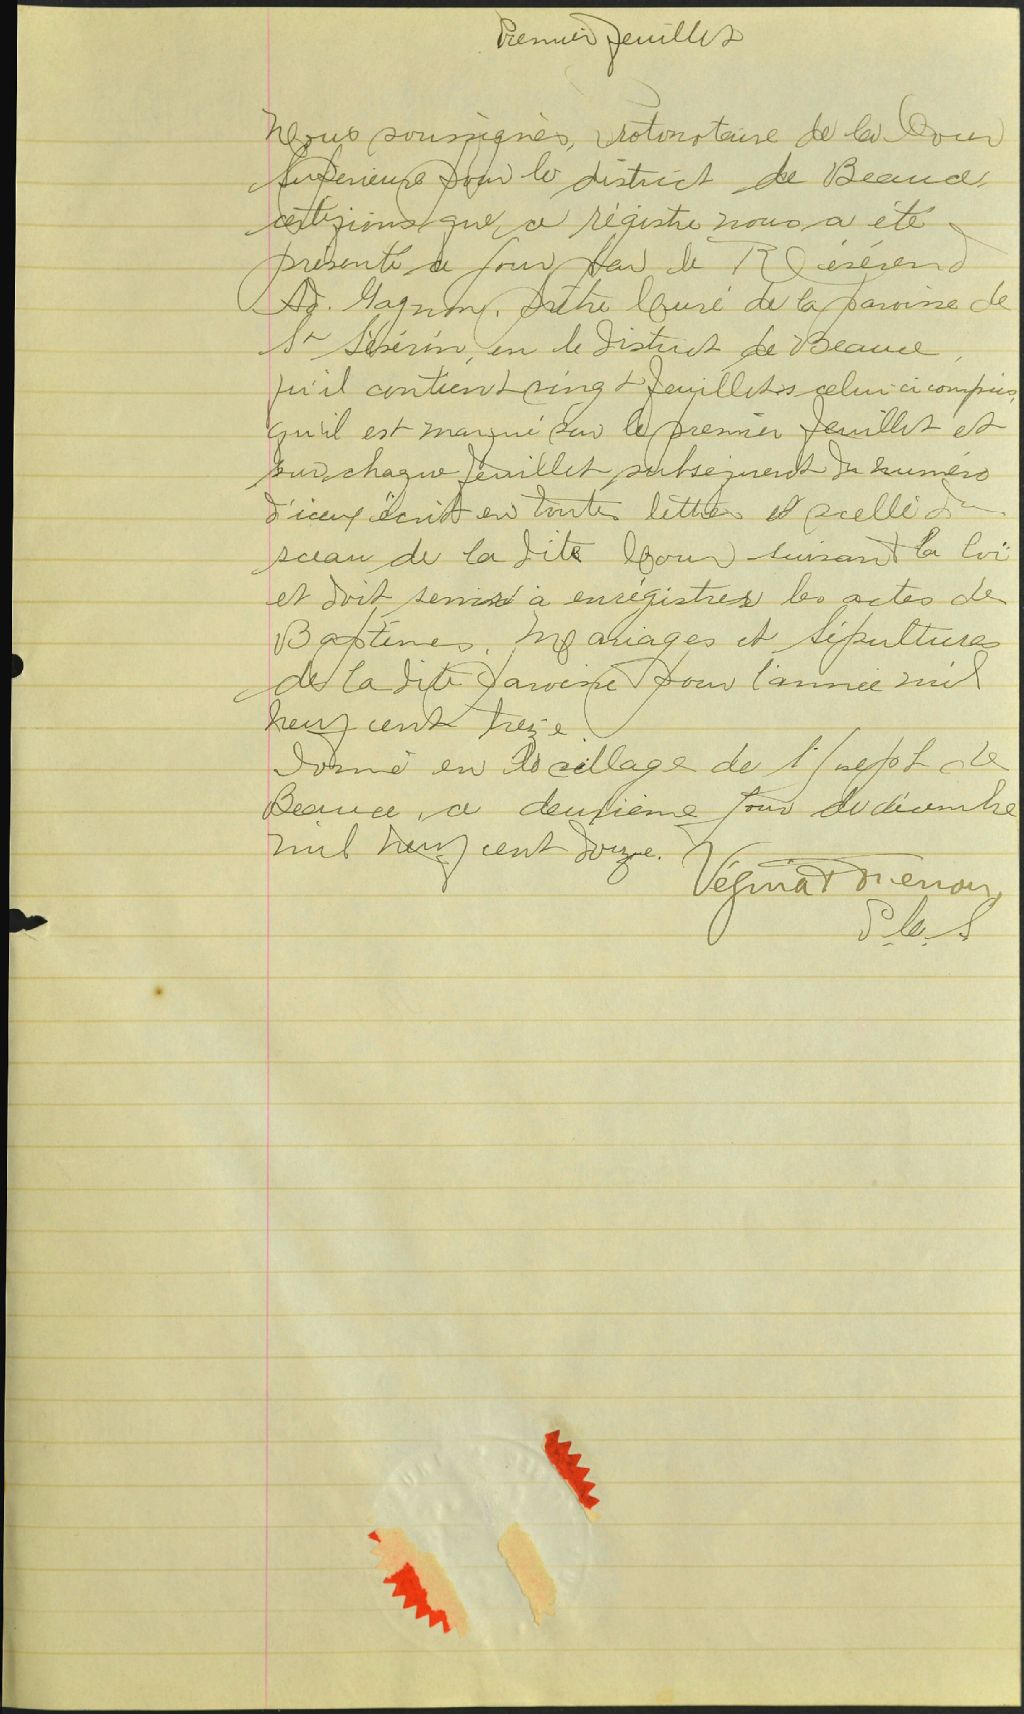 Premier feuillet
Nous soussignés, Protonotaire de la Cour
Supérieure pour le district de Beauce,
certifions que ce régistre nous a été
présenté ce jour par le Révérend
Ad. Gagnon, prêtre Curé de la paroisse de
St Sévérin, en le District de Beauce,
qu'il contient vingt feuillets celui-ci compris,
qu'il est marqué sur le premier feuillet et
sur chaque feuillet subséquent du numéro
d'iceux écrit en toutes lettres et scellé du
sceau de la dite Cour suivant la loi
et doit servir à enrégistrer les actes de
Baptêmes, Mariages et Sépultures
de la dite paroisse pour l'année mil
neuf cent treize.
Donné en le village de St Joseph de
Beauce, ce deuxième jour de décembre
mil neuf cent douze.
Vézina
P. C. S.